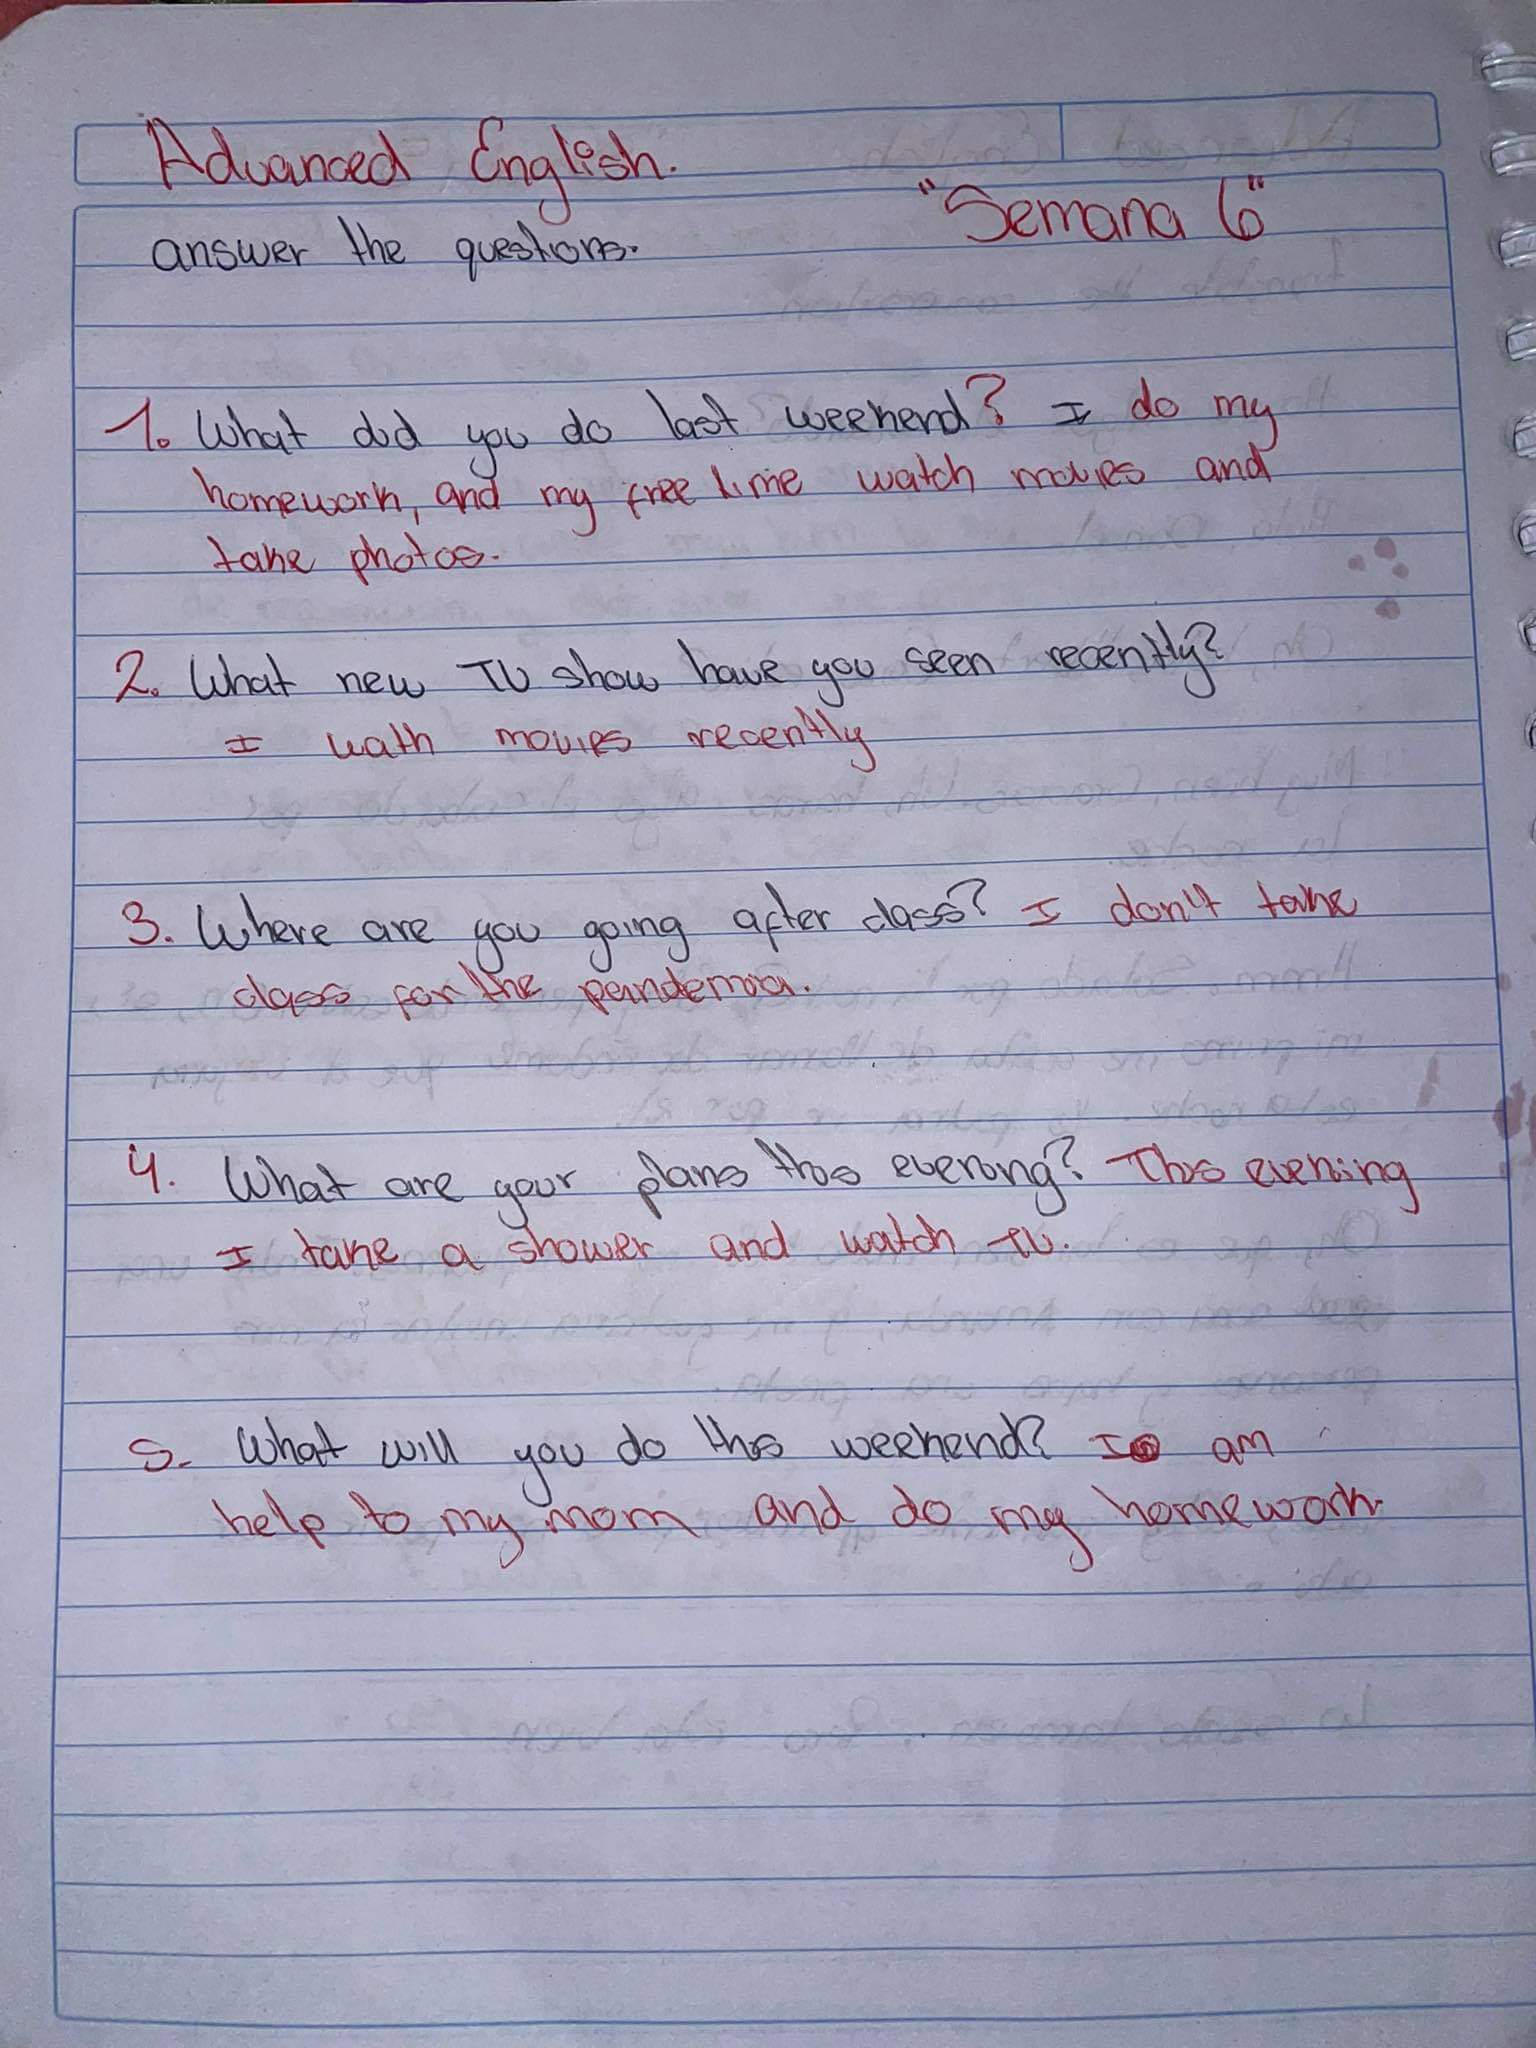 Advanced English.
"Semana 6"
answer the questions.
1. What did you do last weekend? I do my
homework, and my free time watch movies and
take photos.
2. What new TV show have you seen recently?
I wath movies recently
3. Where are you going after class? I don't take
class for the pandemia.
4. What are your plans this evening? This evening
I take a shower and watch TV.
5. What will you do this weekend? I am
help to my mom and do my homework.